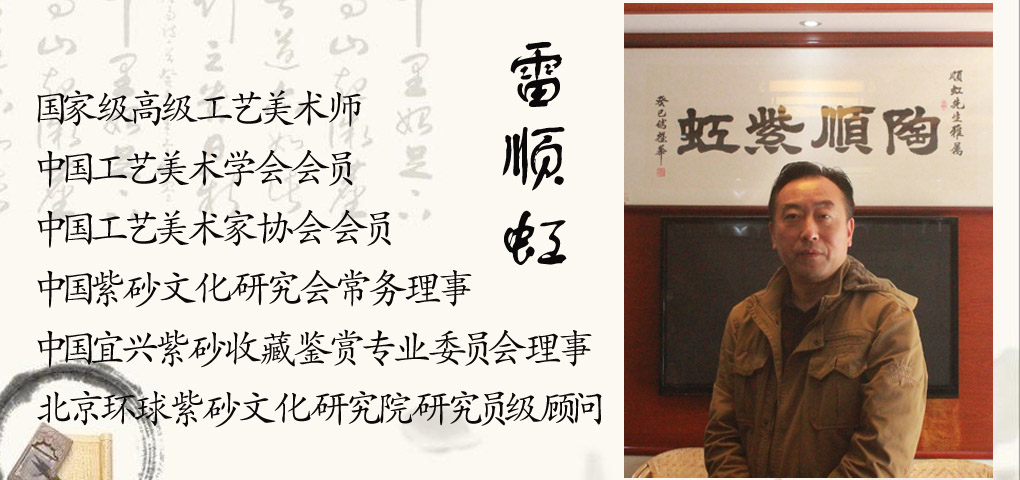 国家级高级工艺美术师
中国工艺美术学会会员
中国工艺美术家协会会员
中国紫砂文化研究会常务理事
中国宜兴紫砂收藏鉴赏专业委员会理事
北京环球紫砂文化研究院研究员级顾问
雷顺虹
順虹先生雅属
陶順紫虹